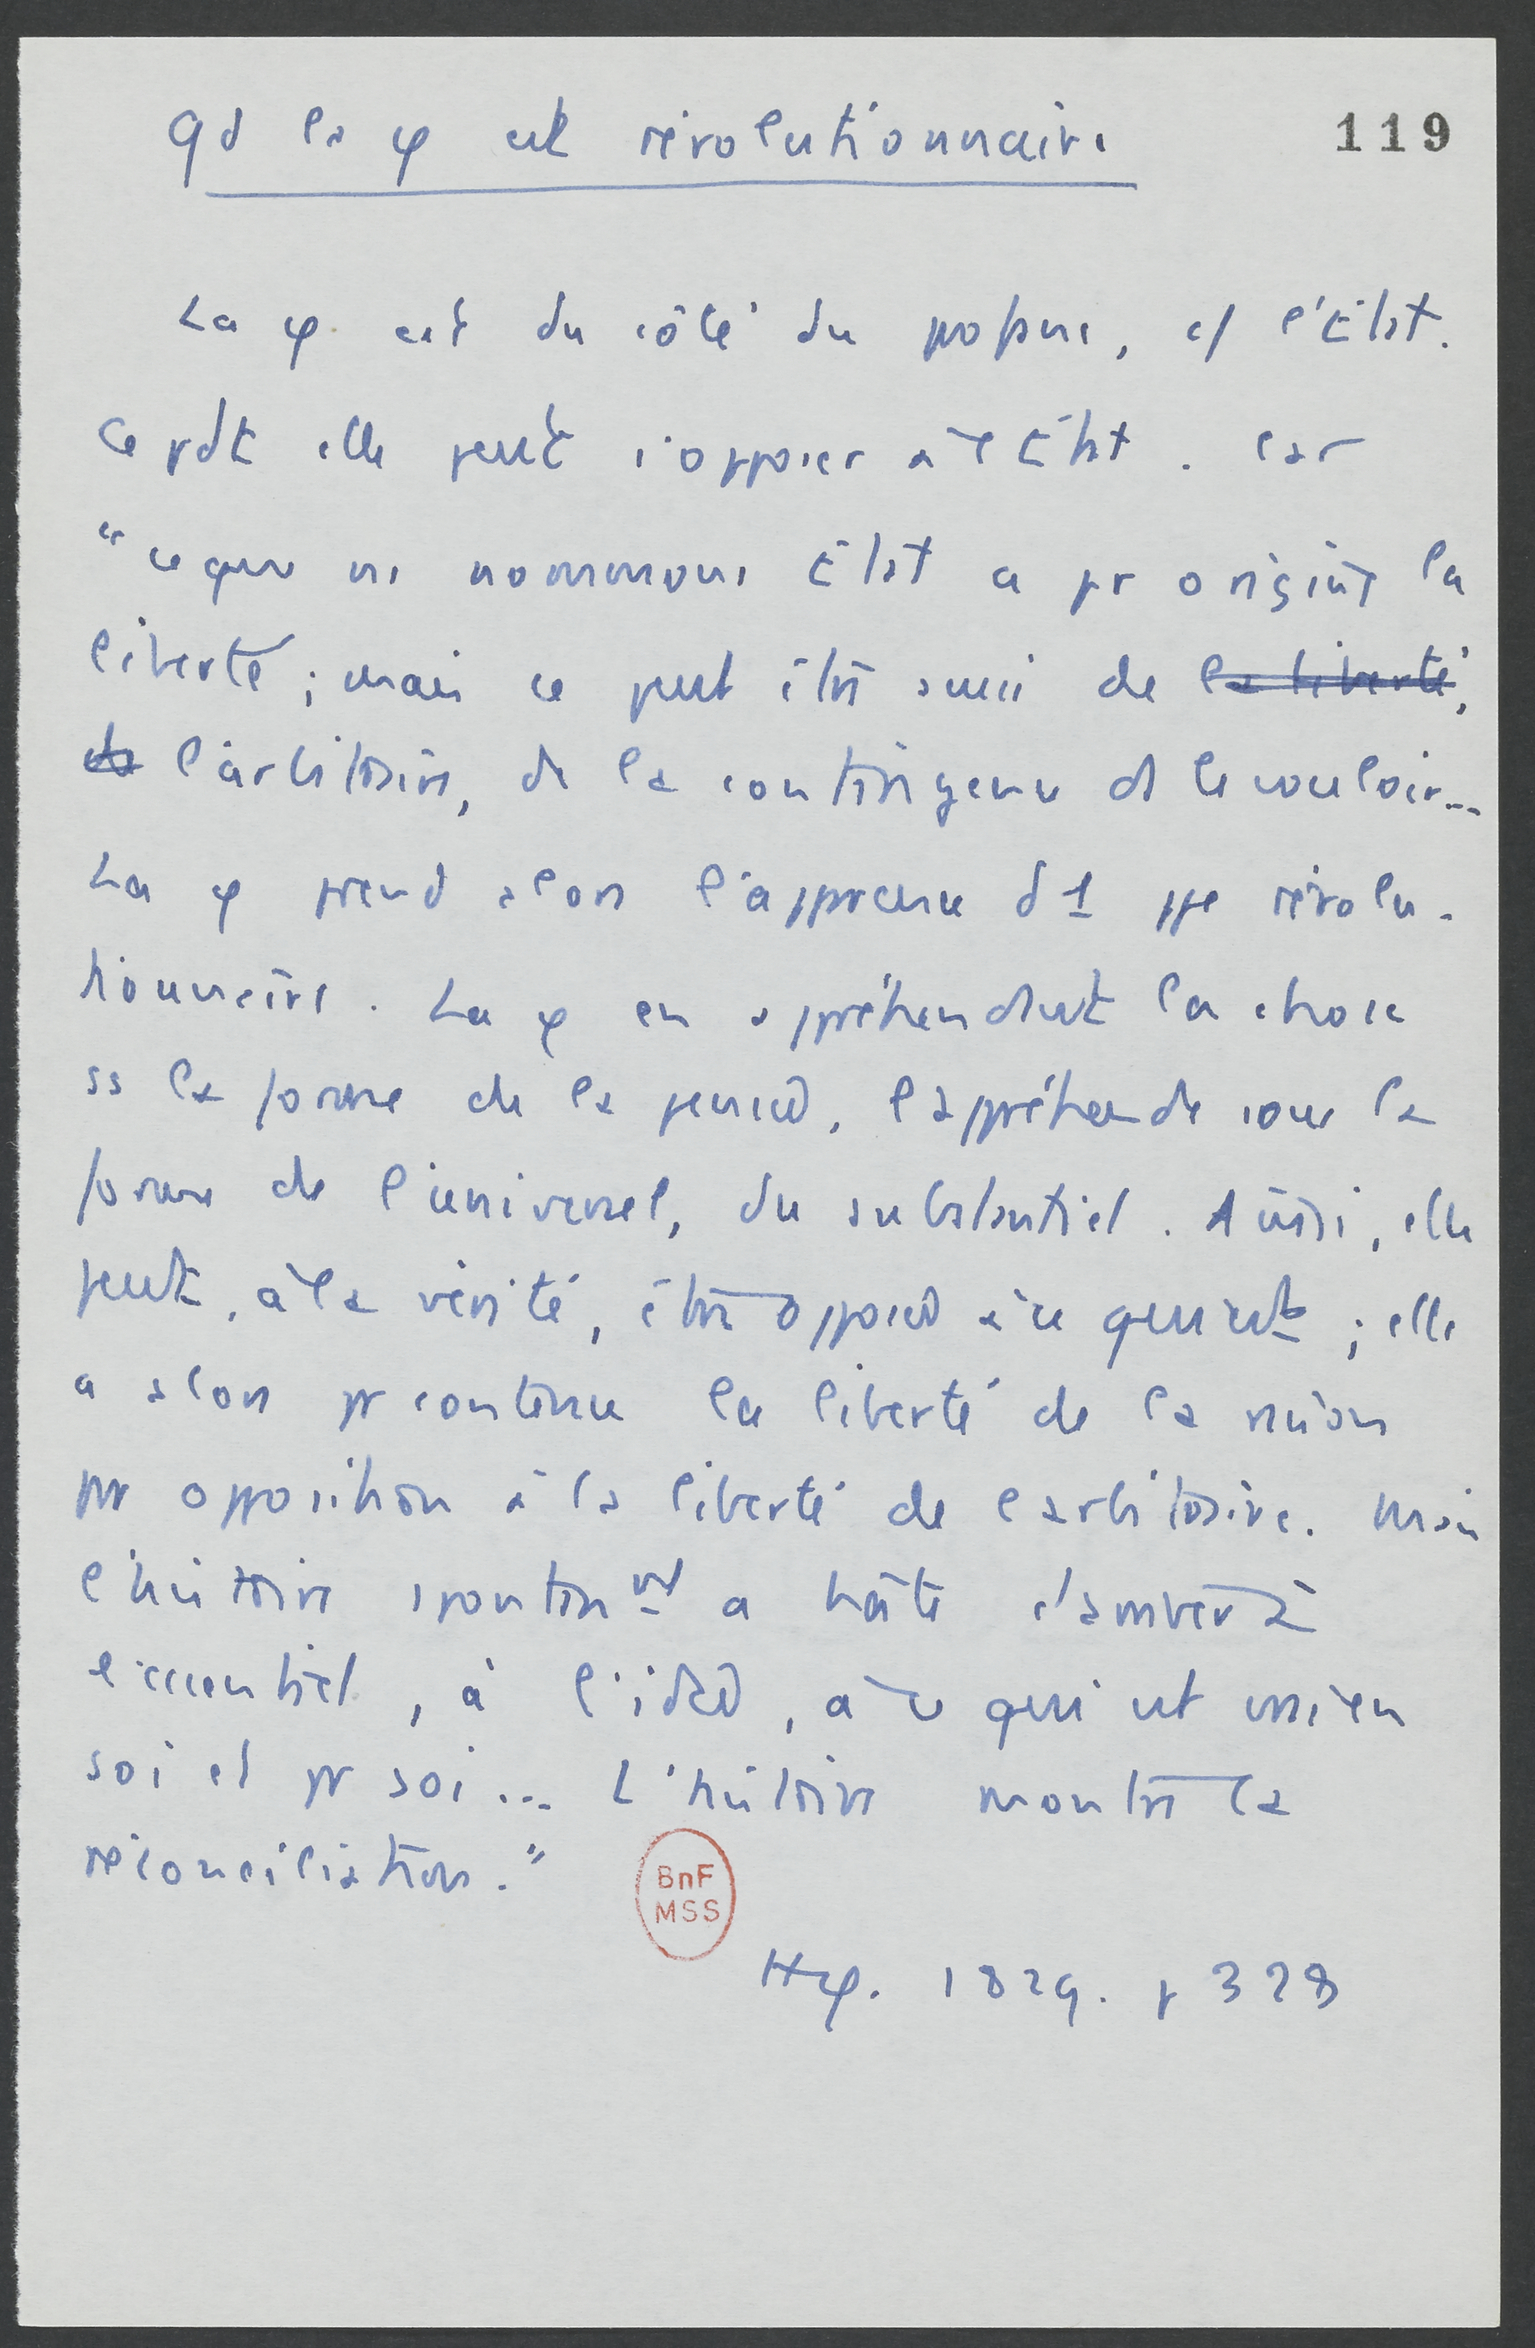 Qd la φ est révolutionnaire
119
La φ est du côté du profane, cf l'Etat.
Ce pdt elle peut s'opposer à l'Etat. Car
"ce que ns nommons Etat a pr origine la
liberté ; mais ce peut être aussi de la liberté,
de l'arbitraire, de la contingence ds le vouloir...
La φ prend alors l'apparence d'1 ppe révolu-
tionnaire. La φ en appréhendant la chose
ss la forme de la pensée, l'appréhende sous la
forme de l'universel, du substantiel. Ainsi, elle
peut, à la vérité, être opposée à ce qui est ; elle
a alors pr contenu la liberté de la raison
par opposition à la liberté de l'arbitraire. Mais
l'histoire spontanmt a hâte d'arriver à
l'essentiel, à l'idée, à ce qui est vrai en
soi et pr soi... L'histoire montre la
réconciliation."
BnF
MSS
Hφ. 1829. p 328